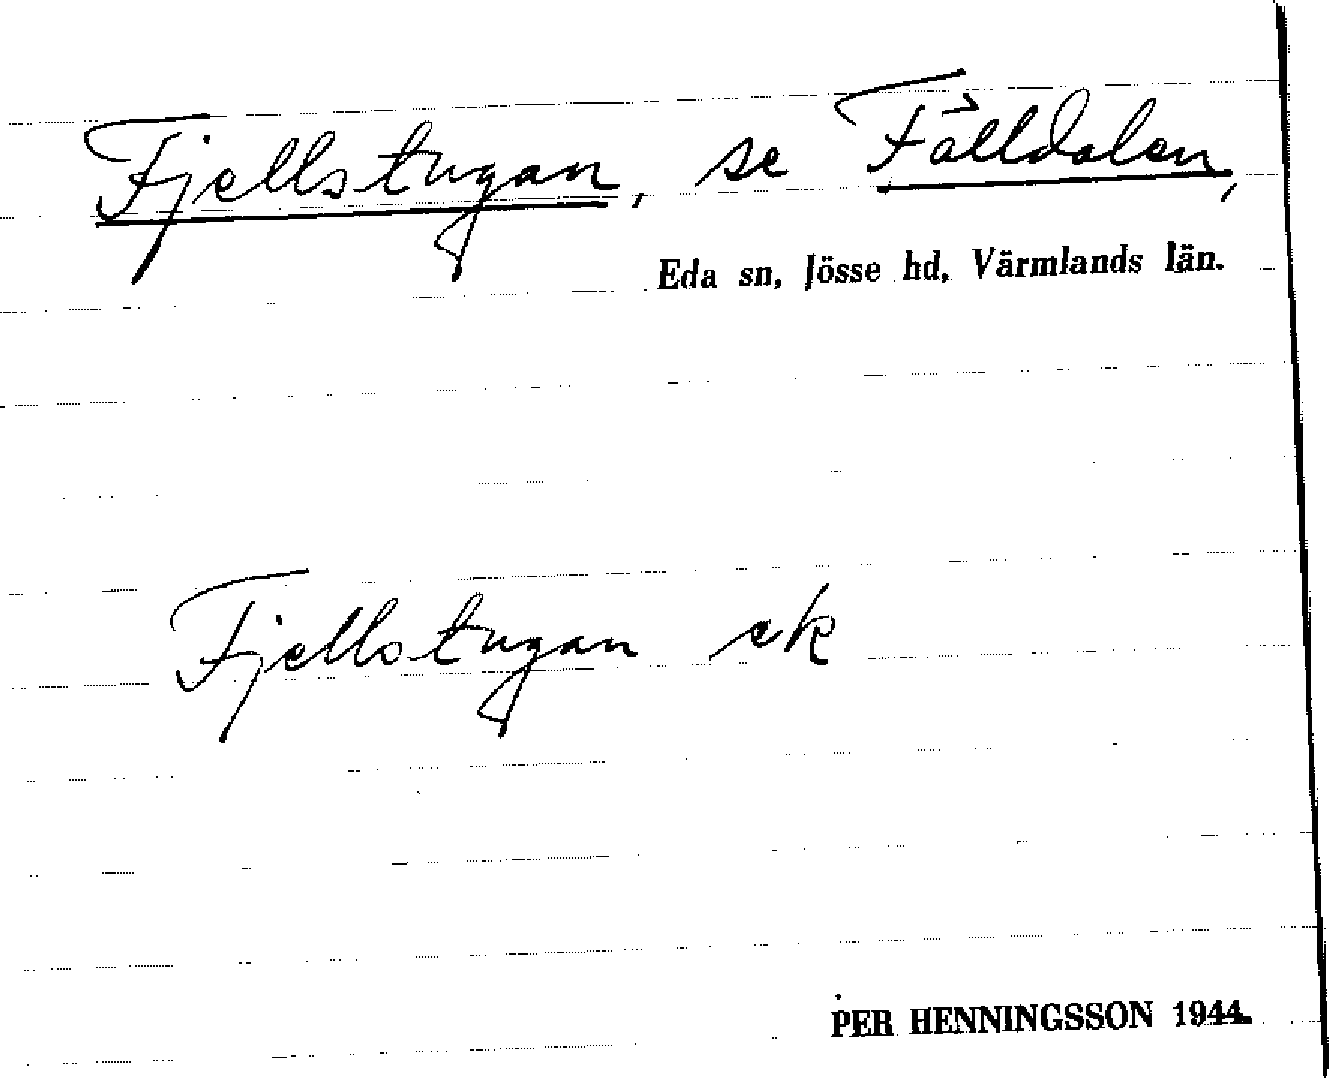 Fjellstugan, se Fälldalen,
Eda sn, Jösse hd, Värmlands län.
Fjellstugan ek
PER HENNINGSSON 1944.